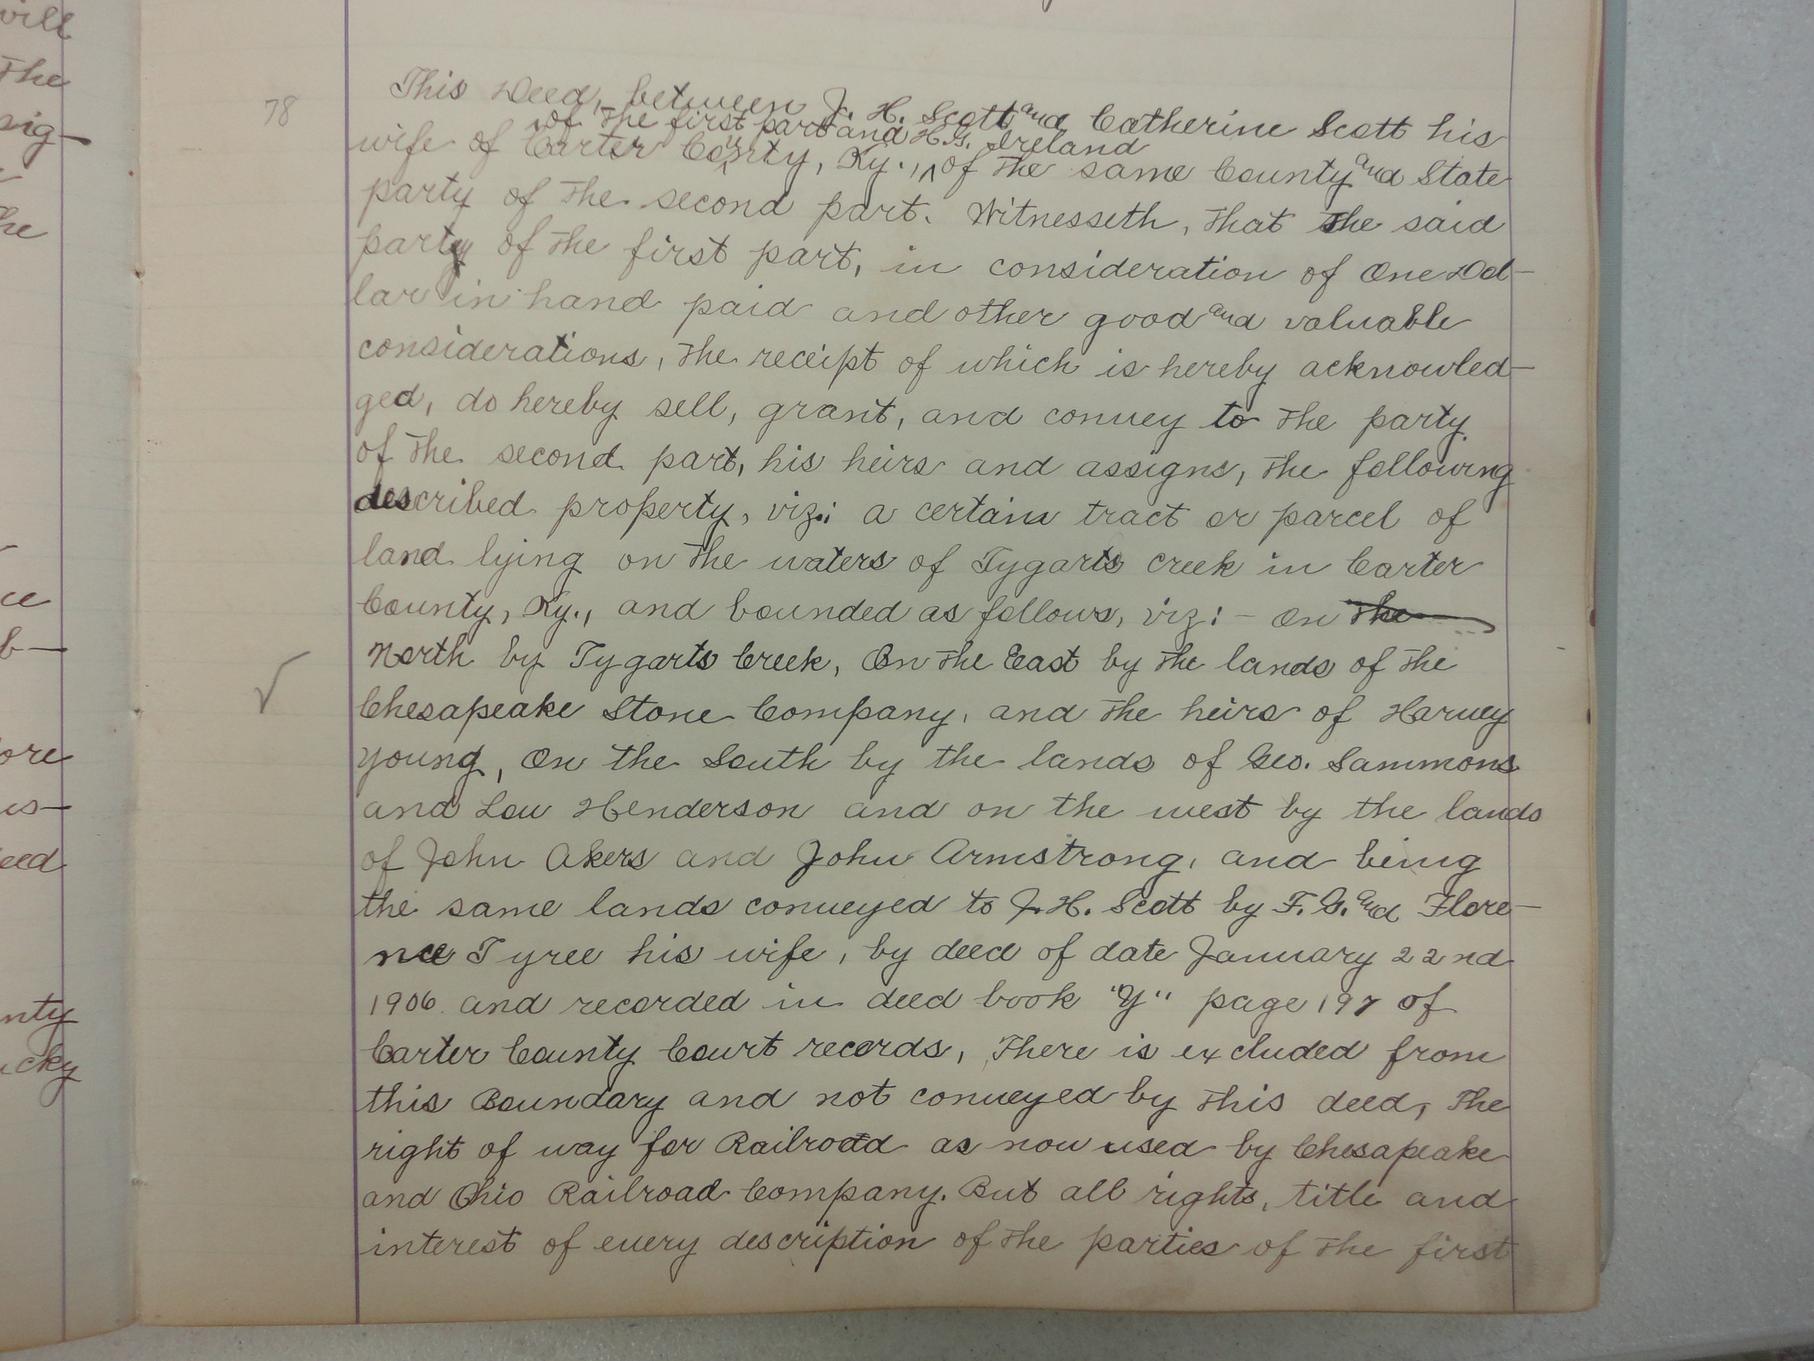 will
The
sig-
he
ce
b-
ore
us-
eed
nty
ucky
78
This Deed, between J. H. Scott and Catherine Scott his
of the first part and H.G. Ireland
wife of Carter County, Ky., ^ of the same County and State
party of the second part. Witnesseth, That The said
party of the first part, in consideration of One Dol-
lar in hand paid and other good and valuable
considerations, the receipt of which is hereby acknowled-
ged, do hereby sell, grant, and convey to the party
of the second part, his heirs and assigns, the following
described property, viz: a certain tract or parcel of
land lying on the waters of Tygarts Creek in Carter
County, Ky., and bounded as follows, viz: - On the
√ North by Tygarts Creek, On the East by the lands of the
Chesapeake Stone Company, and the heirs of Harvey
Young, On the South by the lands of Geo. Sammons
and Lew Henderson and on the west by the lands
of John Akers and John Armstrong, and being
the same lands conveyed to J.H. Scott by F. G. and Flore-
nce Tyree his wife, by deed of date January 22nd
1906 and recorded in deed book "Y" page 197 of
Carter County Court records, There is excluded from
this Boundary and not conveyed by this deed, The
right of way for Railroad as now used by Chesapeake
and Ohio Railroad Company. But all rights, title and
interest of every description of the parties of the first